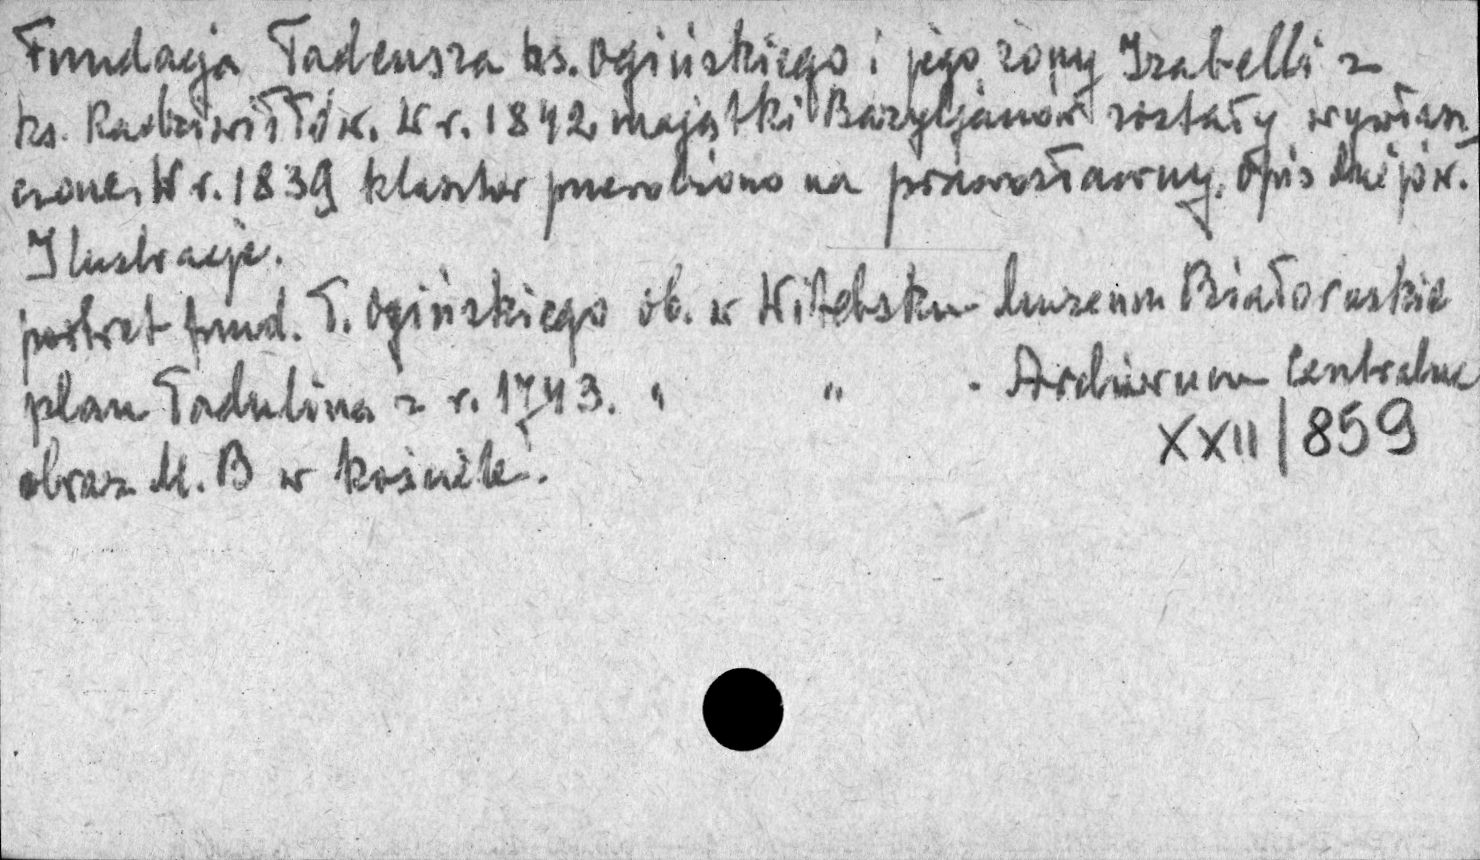 Fundacja Tadeusza ks. Ogińskiego i jego żony Izabelli z
ks. Radziwiłłów. W r. 1842 majątki Bazyljanów zostały wywłasz
czone. W r. 1839 klasztor przerobiono na prawosławny. Opis dziejów.
Ilustracje.
portret fund. T. Ogińskiego ob. w Witebsku Muzeum Białoruskie
plan Tadulina z r. 1743. " " . Archiwum Centralne
XXII/859
obraz M. B w kościele.